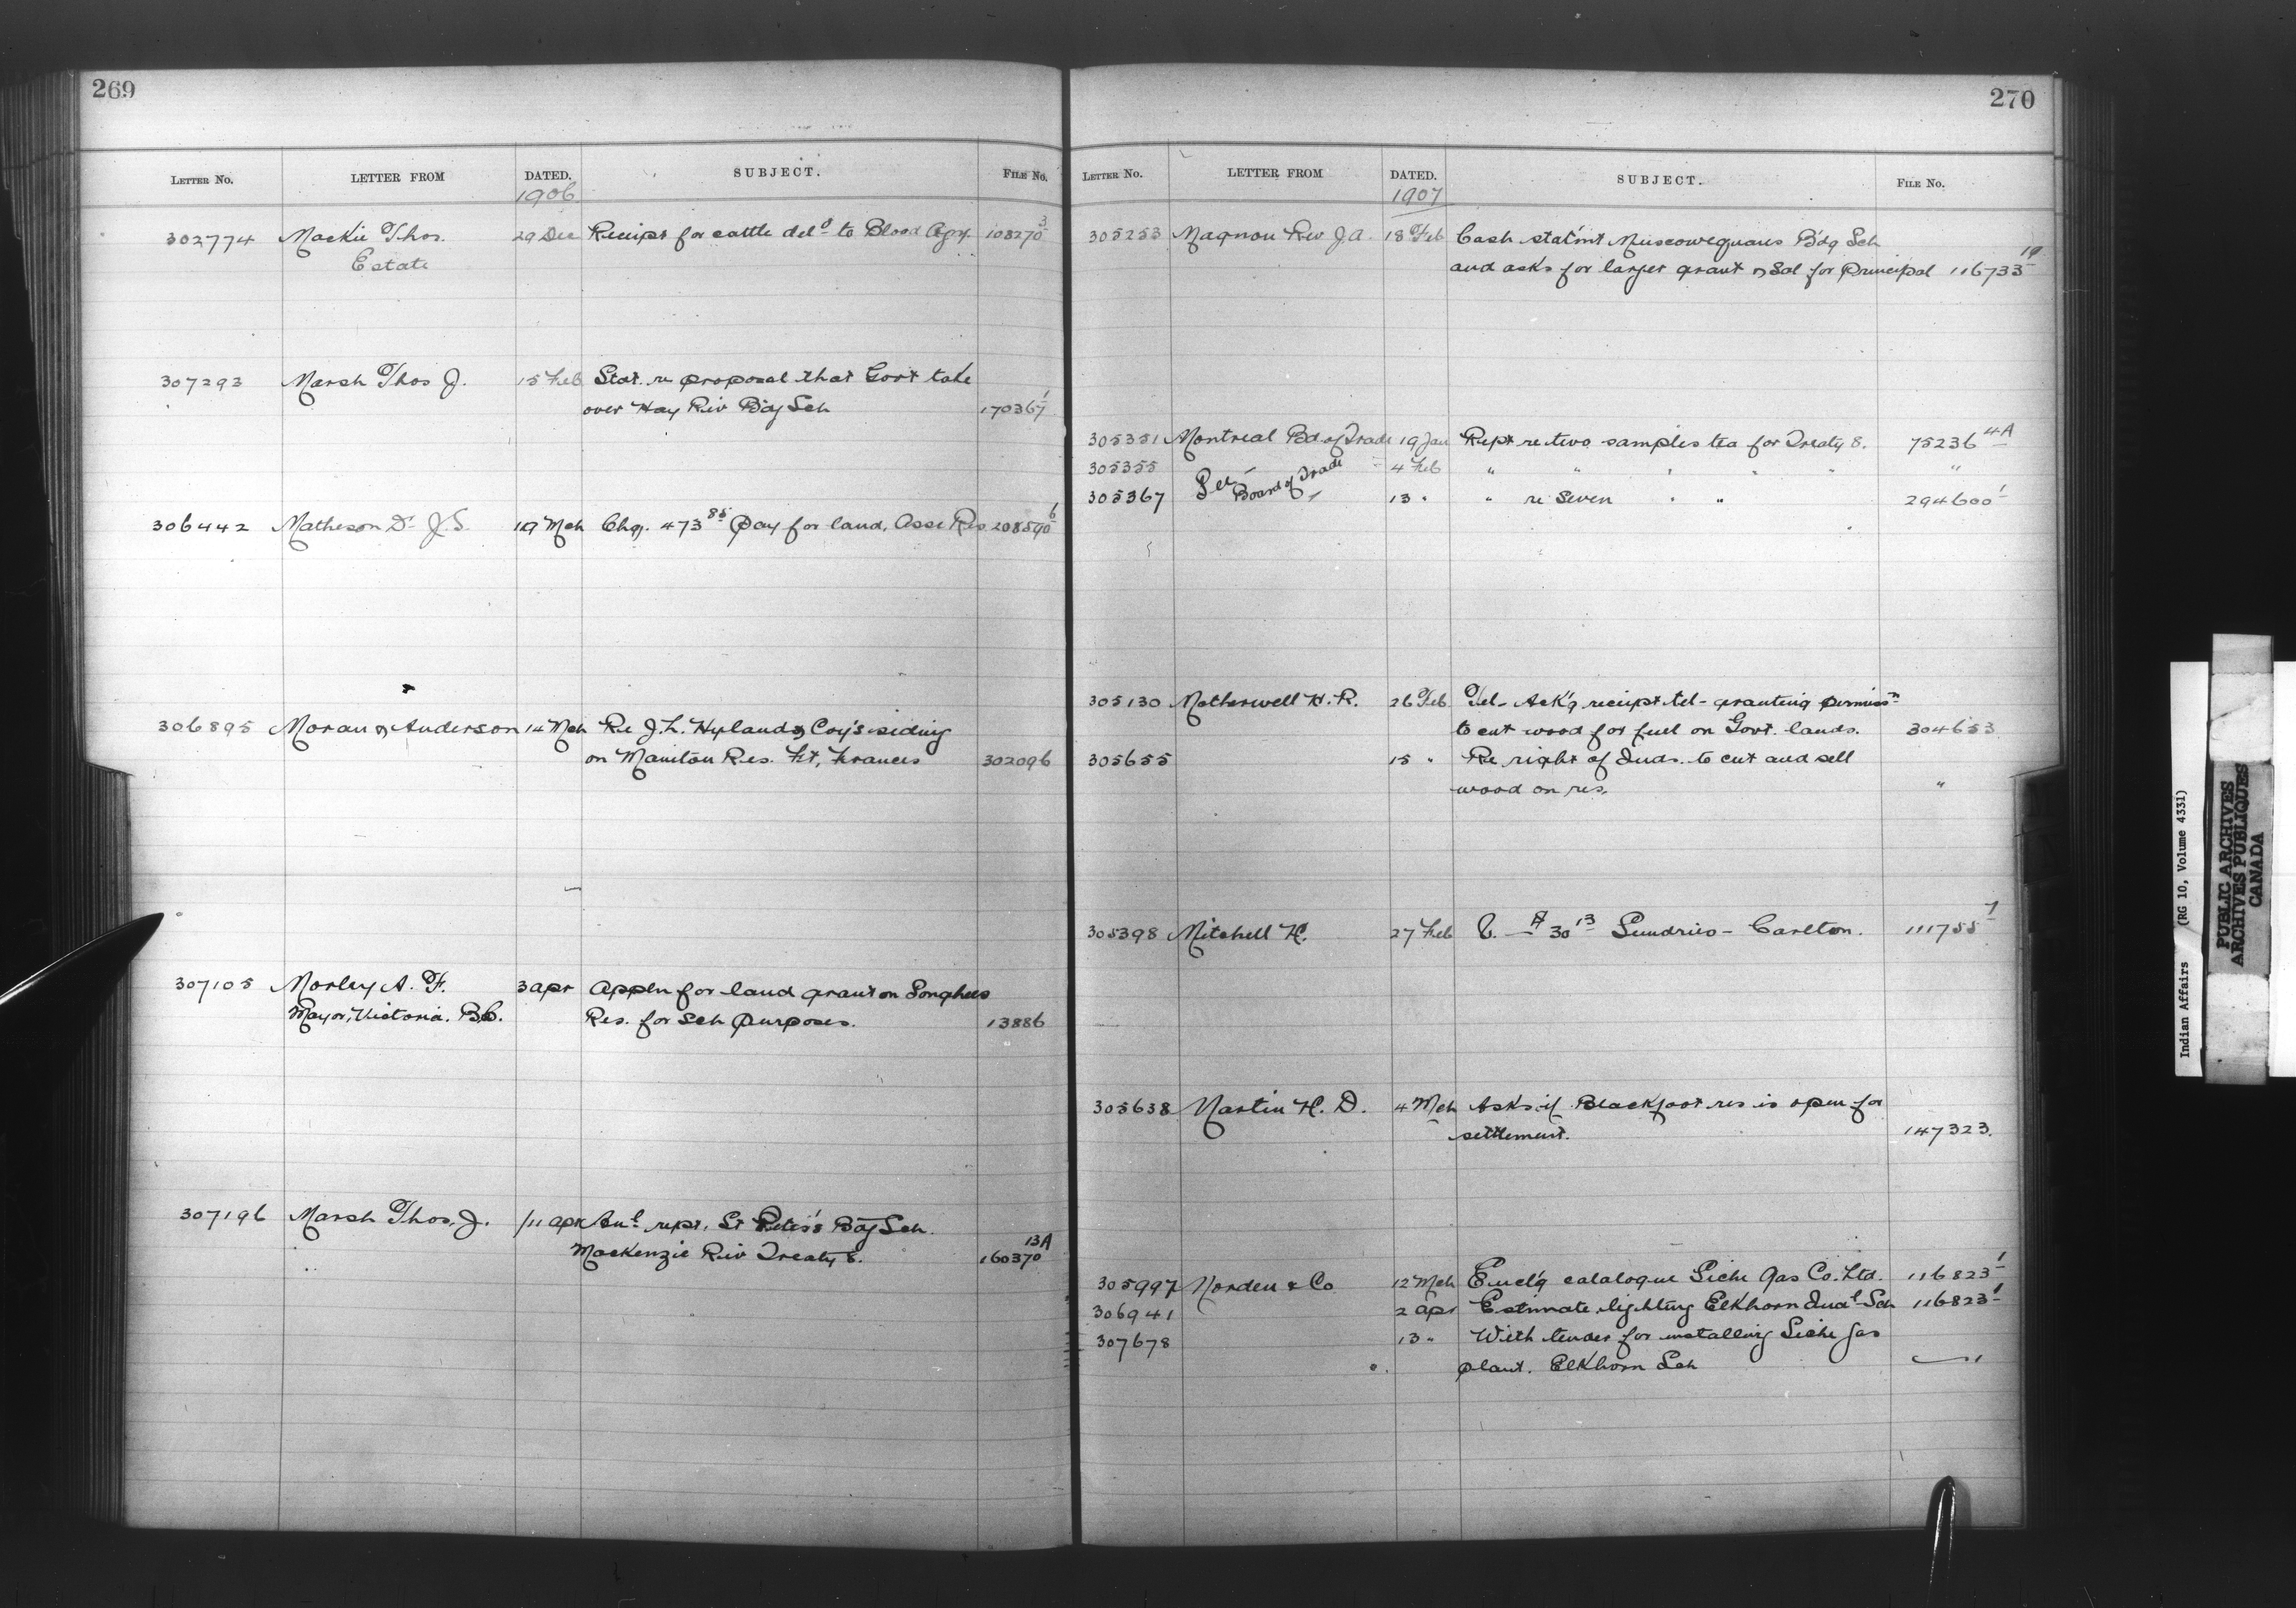 269
LETTER No. LETTER FROM DATED. SUBJECT. FILE No.
1906
302774 Mackie Thos. 29 Dec Receipt for cattle del^d to Blood Agcy. 108270^3
Estate
307293 Marsh Thos J. 15 Feb Stat. re proposal that Govt take
over Hay Riv B'dg Sch 170367^1
306442 Matheson D^r J.S. 19 Mch Chq. 473^85 Pay for land, Asst Res. 208590^6
306895 Moran & Anderson 14 Mch Re J.L. Hyland & Coy's siding
on Manitou Res. Ft. Frances 302096
307105 Morley A. F. 3 Apr Appln for land grant on Songhees
Mayor, Victoria. B.C. Res. for Sch purposes. 13886
307196 Marsh Thos. J. 11 Apr An^l rept. St Peter's B'dg Sch.
Mackenzie Riv Treaty 8. 160370^13A
270
LETTER No. LETTER FROM DATED. SUBJECT. FILE No.
1907
305253 Magnan Rev J.A. 18 Feb Cash stat'mt Muscowequans B'dg Sch
and asks for larger grant & Sal for Principal 116733^19
305351 Montreal Bd. of Trade 19 Jan Rept re two samples tea for Treaty 8. 75236^4A
305355 4 Feb " " " " " "
305367 See Board of Trade 13 " " re Seven " " 294600^1
305130 Motherwell W. R. 26 Feb Tel- Ack'g receipt tel- granting permiss^n
to cut wood for fuel on Govt. lands. 304653
305655 15 " Re right of Inds. to cut and sell
wood on res. "
305398 Mitchell H. 27 Feb V. $30^13 Sundries - Carlton. 111755^7
305638 Martin H. D. 4 Mch Asks if Blackfoot res is open for
settlement. 147323.
305997 Morden & Co 12 Mch Encl'g catalogue Siche Gas Co. Ltd. 116823^1
306941 2 Apr Estimate lighting Elkhorn Indu^l Sch 116823^1
307678 13 " With tender for installing Siche gas
plant. Elkhorn Sch "
Indian Affairs (RG 10, Volume 4331)
PUBLIC ARCHIVES
ARCHIVES PUBLIQUES
CANADA